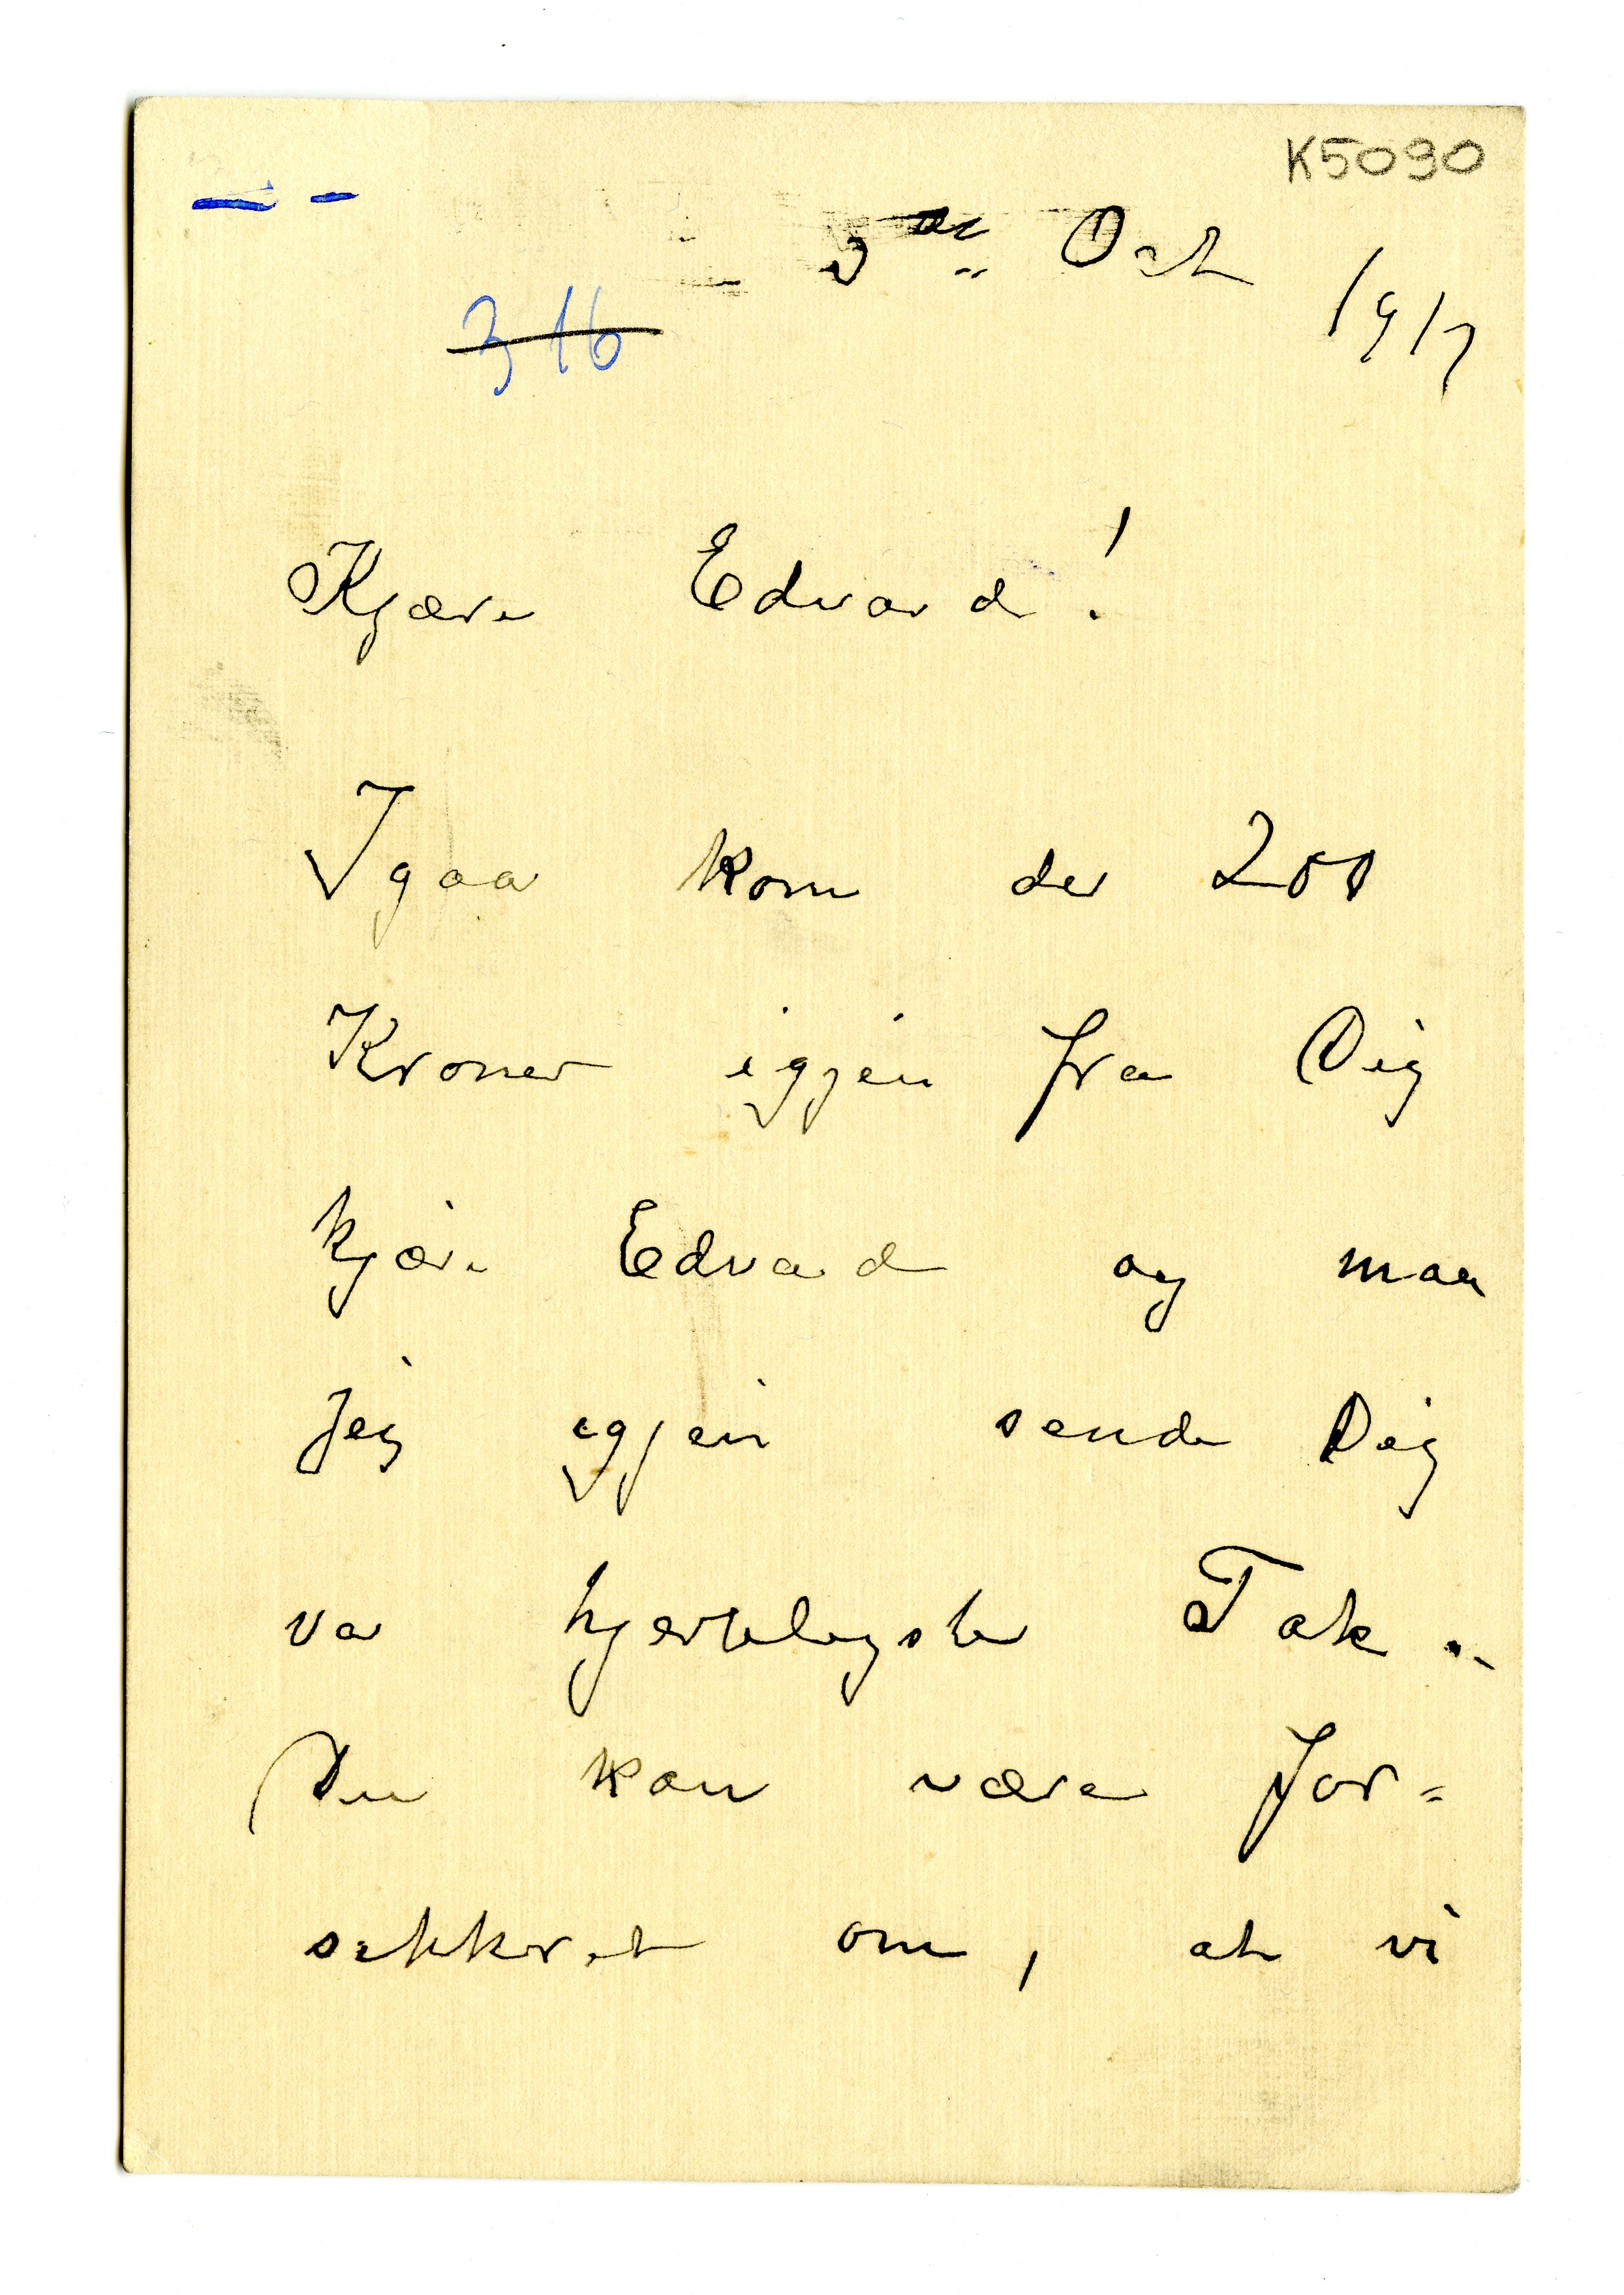 K5090
3de Oct 1917
316
Kjære Edvard!
Igaar kom der 200
Kroner igjen fra Dig
kjære Edvard og maa
jeg igjen sende Dig
vor hjerteligste Tak..
Du kan være for=
sikkret om, at vi